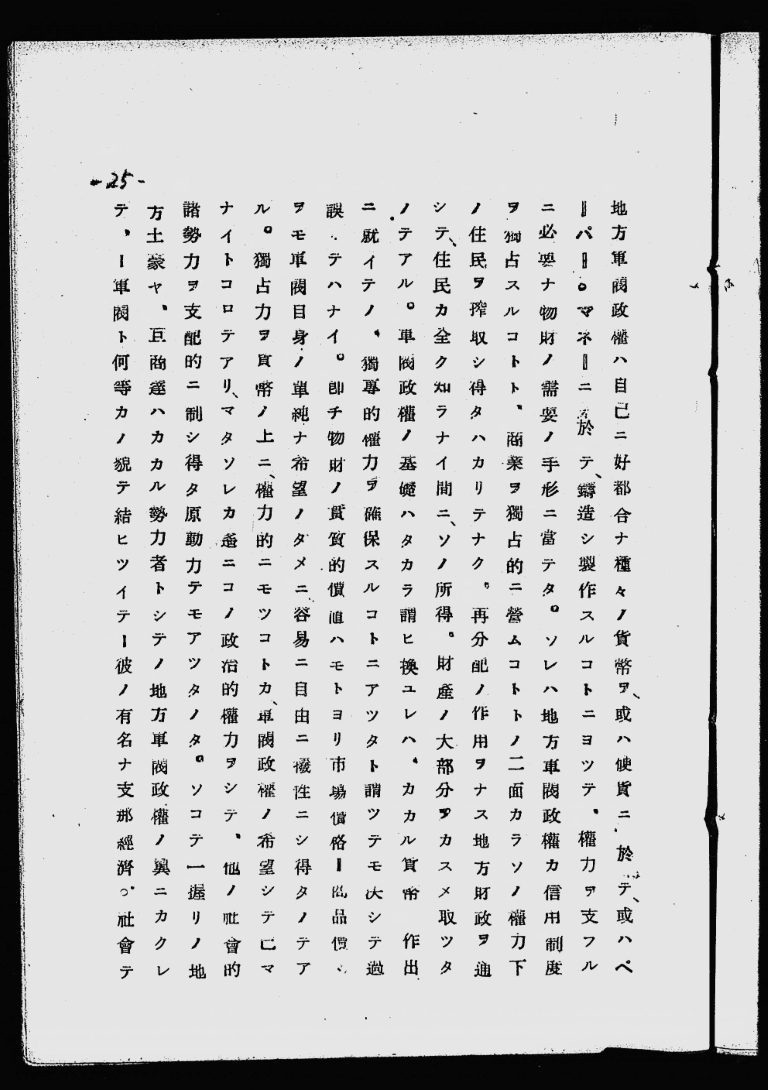 -25-
地方軍閥政權ハ自己ニ好都合ナ種々ノ貨幣ヲ、或ハ硬貨ニ於テ、或ハペ
ーパー。マネーニ於テ、鑄造シ製作スルコトニヨツテ、權力ヲ支フル
ニ必要ナ物財ノ需要ノ手形ニ當テタ。ソレハ地方軍閥政權カ信用制度
ヲ獨占スルコトト、商業ヲ獨占的ニ營ムコトトノ二面カラソノ權力下
ノ住民ヲ搾取シ得タハカリテナク、再分配ノ作用ヲナス地方財政ヲ通
シテ、住民カ全ク知ラナイ間ニ、ソノ所得。財產ノ大部分ヲカスメ取ツタ
ノテアル。軍閥政權ノ基礎ハタカラ謂ヒ換ユレハ、カカル貨幣 作出
ニ就イテノ、獨專的權力ヲ確保スルコトニアツタト謂ツテモ決シテ過
誤 テハナイ。卽チ物財ノ實質的價値ハモトヨリ市場價格ー商品價
ヲモ軍閥自身ノ單純ナ希望ノタメニ、容易ニ自由ニ犧性ニシ得タノテア
ル。獨占力ヲ貨幣ノ上ニ、權力的ニモツコトカ、軍閥政權ノ希望シテ已マ
ナイトコロテアリ、マタソレカ逆ニコノ政治的權力ヲシテ、他ノ社會的
諸勢力ヲ支配的ニ制シ得タ原動力テモアツタノタ。ソコテ一握リノ地
方土豪ヤ、巨商達ハカカル勢力者トシテノ地方軍閥政權ノ奧ニカクレ
テ、ー軍閥ト何等カノ貌テ結ヒツイテー彼ノ有名ナ支那經濟。社會テ